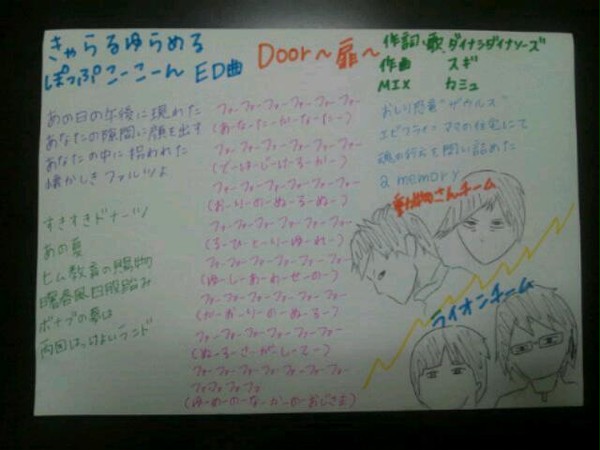 きゃらるゆらめる
ぽっぷこーこーん ED曲
Door～扉～
作詞、歌 ダイナシダイナソーズ
作曲 スギ
MIX カミュ
あの日の午後に現れた
あなたの隙間い顔を出す
あなたの中に拾われた
懐かしきファルツよ
すきすきドーナーツ
あの夏
ヒム教育の賜物
曙春風日服踏み
ボナブの夢は
両国はっけよいランド
ファーファーファーファーファーファー
(あーなーたーがーなーたー)
ファーファーファーファーファーファー
(でーはーじーけーるーがー)
ファーファーファーファーファーファー
(おーりーのーぬーるーぬー)
ファーファーファーファーファーファー
(るーひーとーりーゆーれー)
ファーファーファーファーファーファー
(ゆーしーあーわーせーのー)
ファーファーファーファーファーファー
(がーがーりーのーぬーるー)
ファーファーファーファーファーファー
(ぬーるーさーがーしーてー)
ファーファーファーファーファーファー
ファファファファ
(ゆーめーのーなーかーのーおじさま)
おしり惑星"ザウルス"
エビフライ、ママの住宅にて
魂の行方を問い詰めた
a memory
動物さんチーム
ライオンチーム